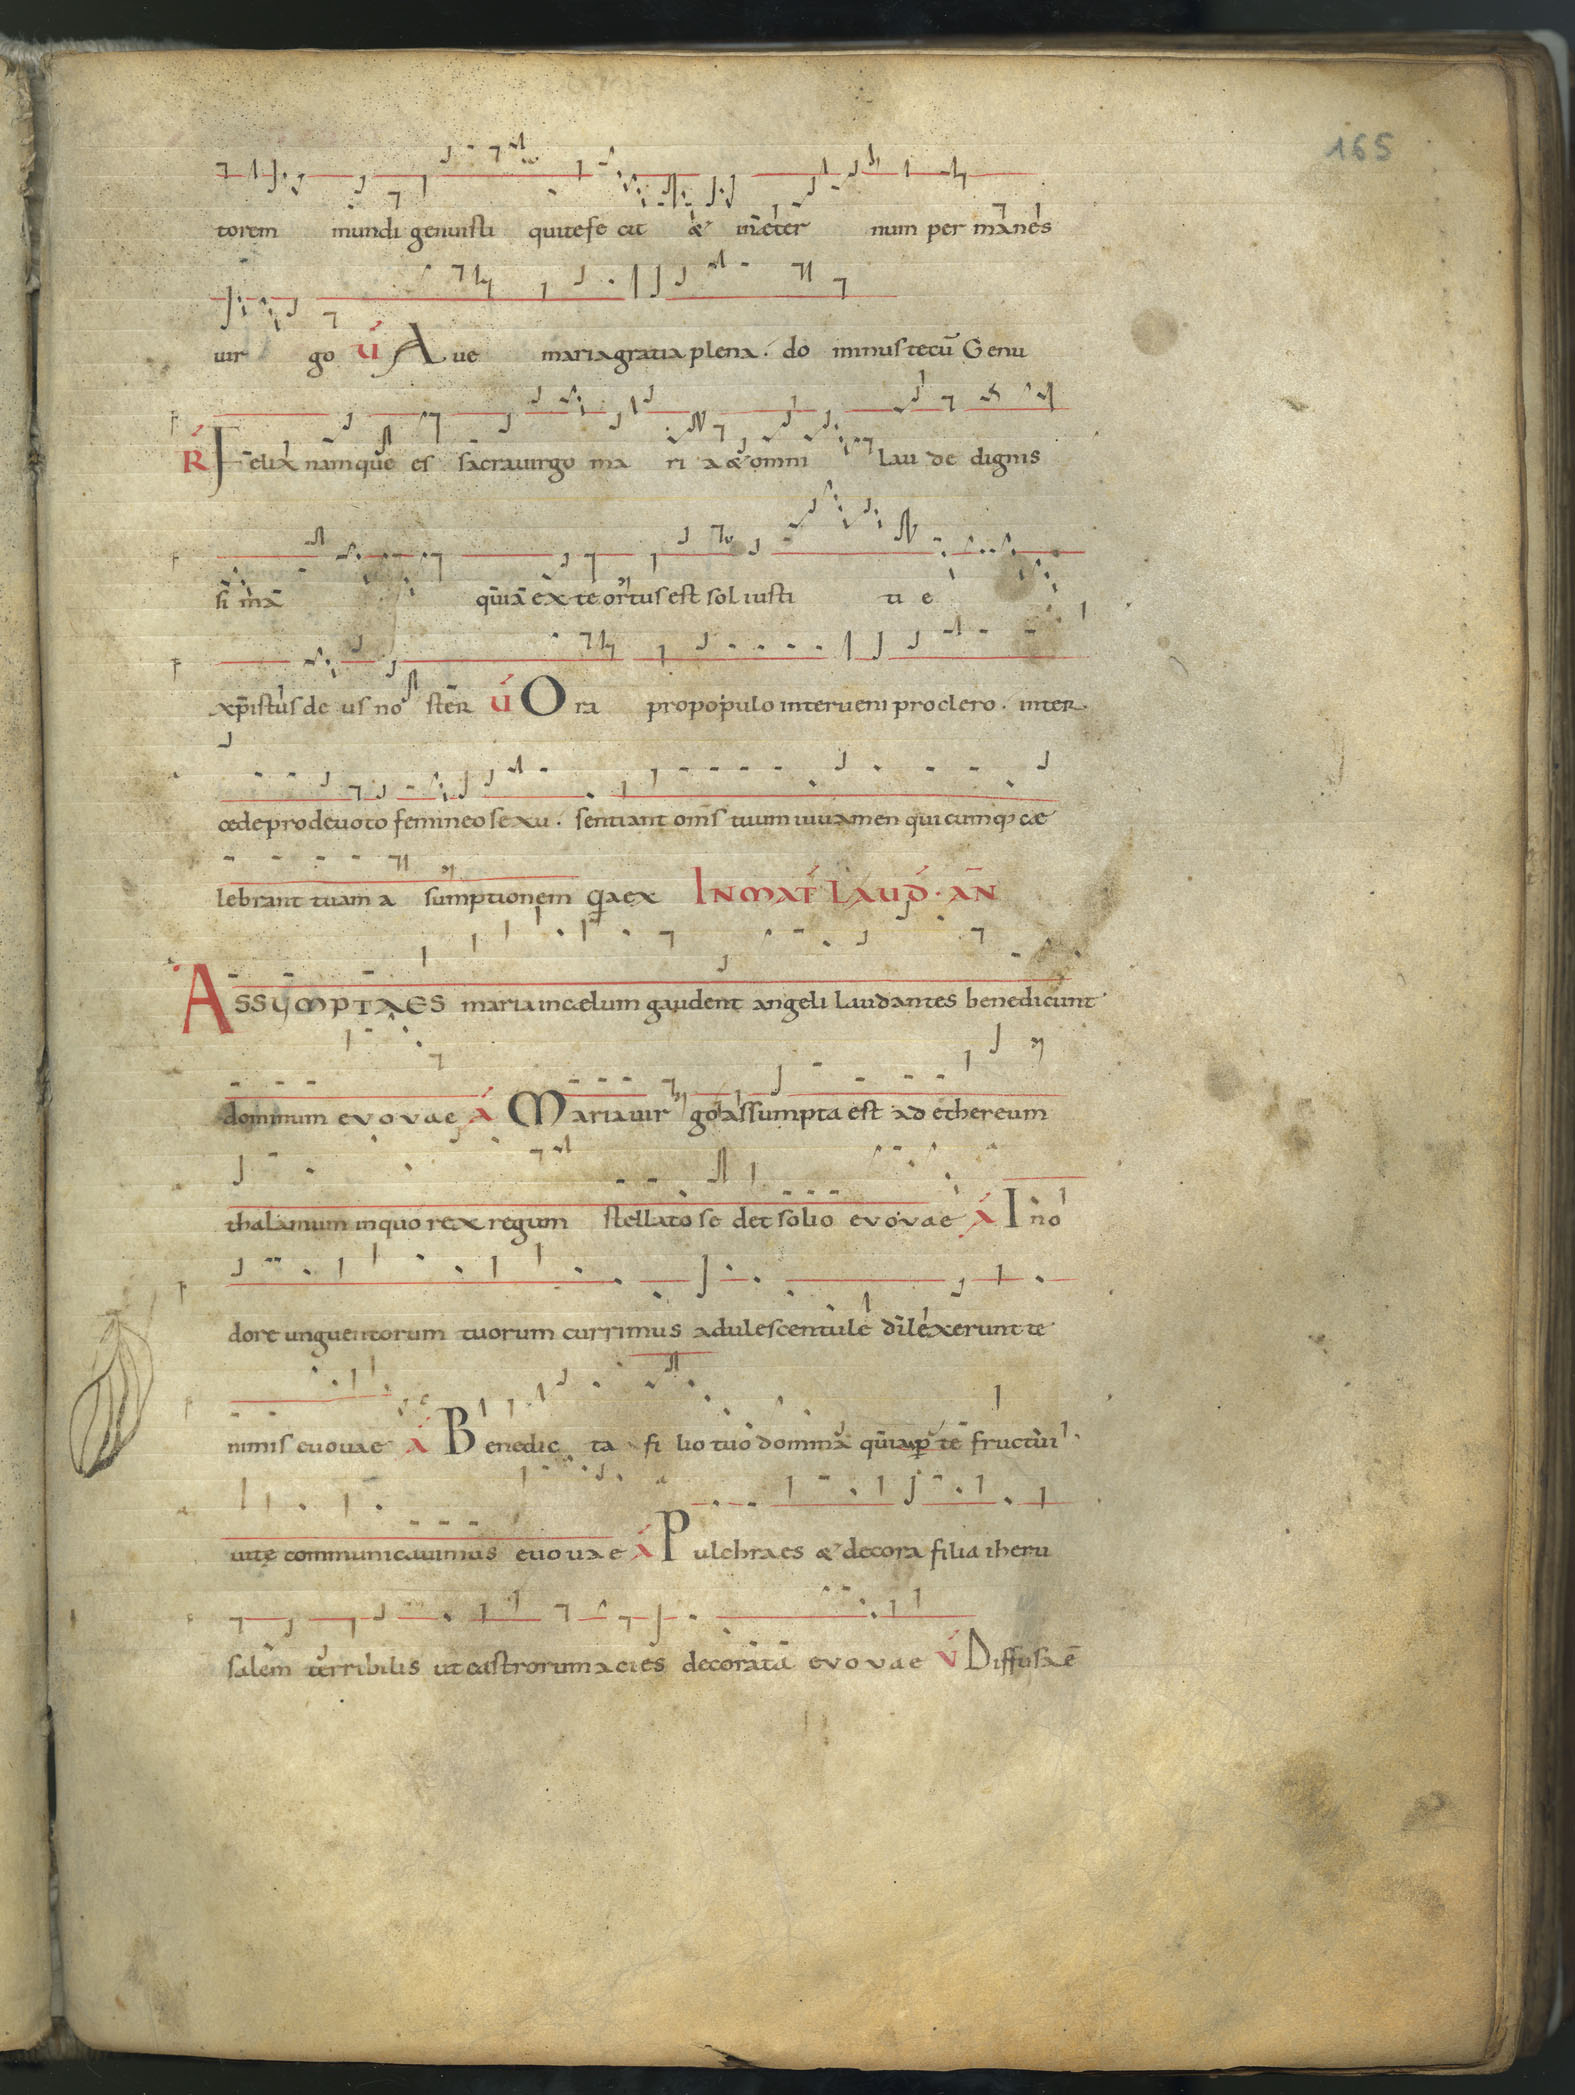 165
torem mundi genuisti quitefe cit & inęter num per manes
uir go V Aue mariagratia plena . do minustecū Genu
R Felix namque es sacrauirgo ma ri a & omni lau de dignis
si ma quia ex te ortus est sol iusti ti e
xp̄istus de us no ster V Ora propopulo interueni proclero . inter
cedeprodeuoto femineo sexu . sentiant oms̄ tuum iuuamen quicumq; cæ
lebrant tuam a sumptionem Qiaex INMAT LAUD . AN
ASSUMPTAES maria incælum gaudent angeli laudantes benedicunt
dominum evovae A Mariauir go assumpta est ad ethereum
thalamum inquo rex regum stellato se det solio evovae A Ino
dore unguentorum tuorum currimus adulescentule dilexerunt te
nimis euouae A Benedic ta fi lio tuo domina quiap te fructum
uitę communicauimus euouae A Pulchraes & decora filia iheru
salem terribilis ut castrorum acies decorata evovae V Diffusaē